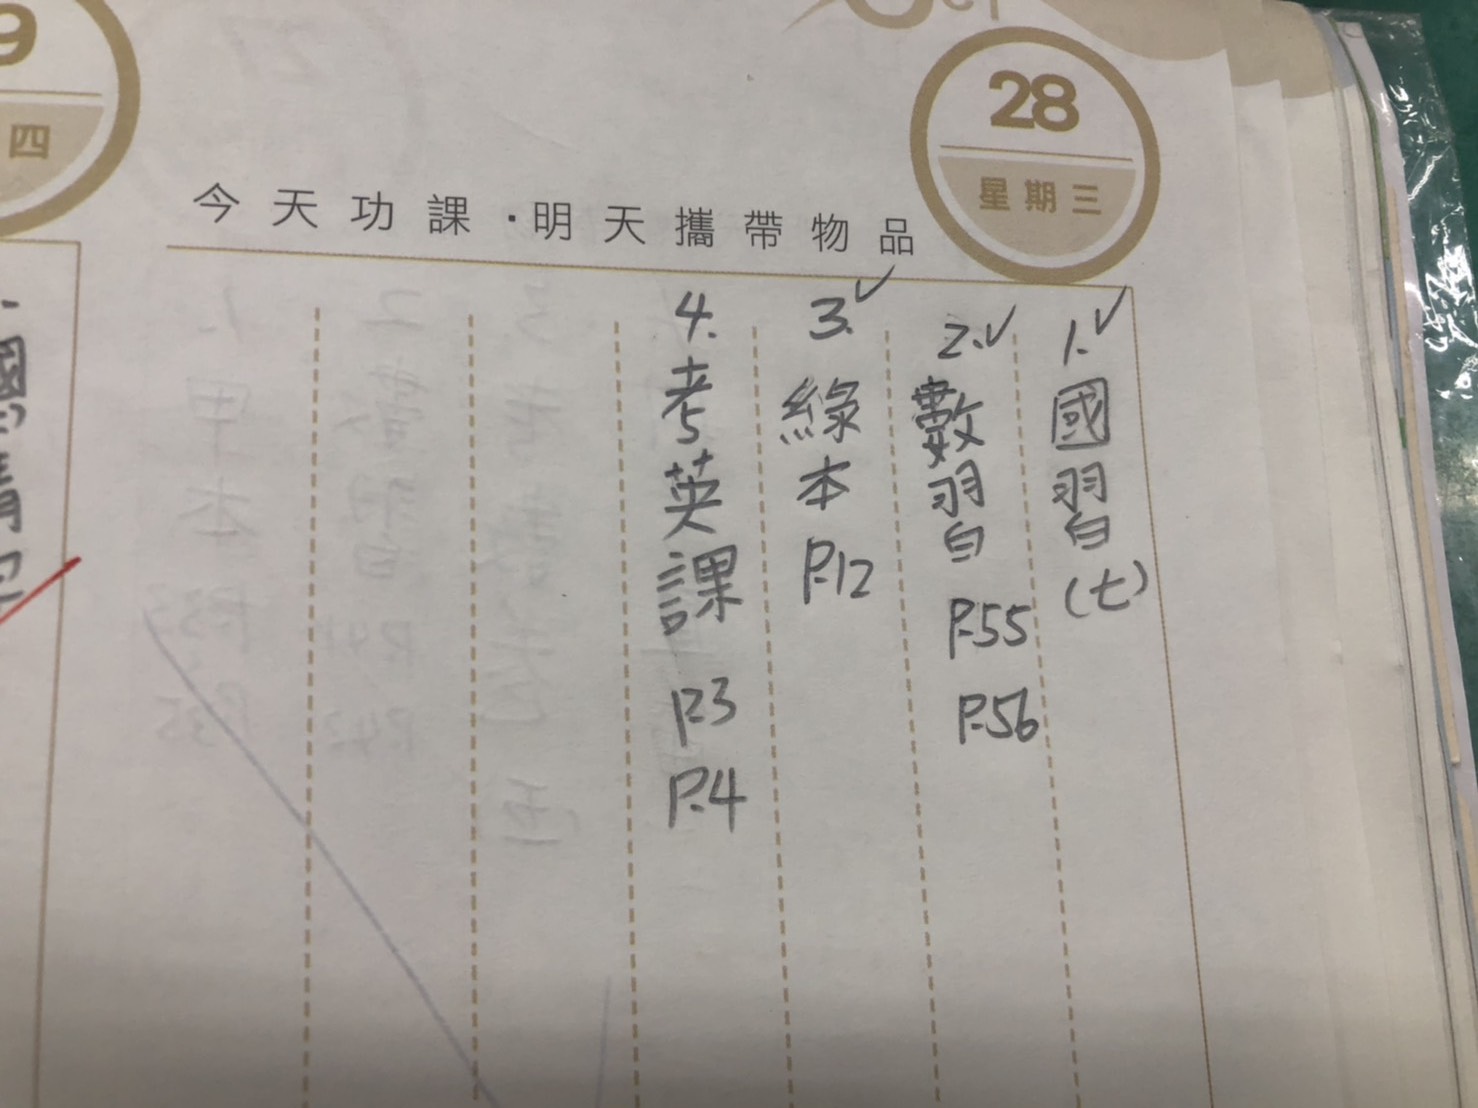 Oct
28
星期三
今天功課·明天攜帶物品
1.✓國習(七)
2.✓數習 P.55 P.56
3.✓綠本 P.12
4.考英課 P.3 P.4
9
四